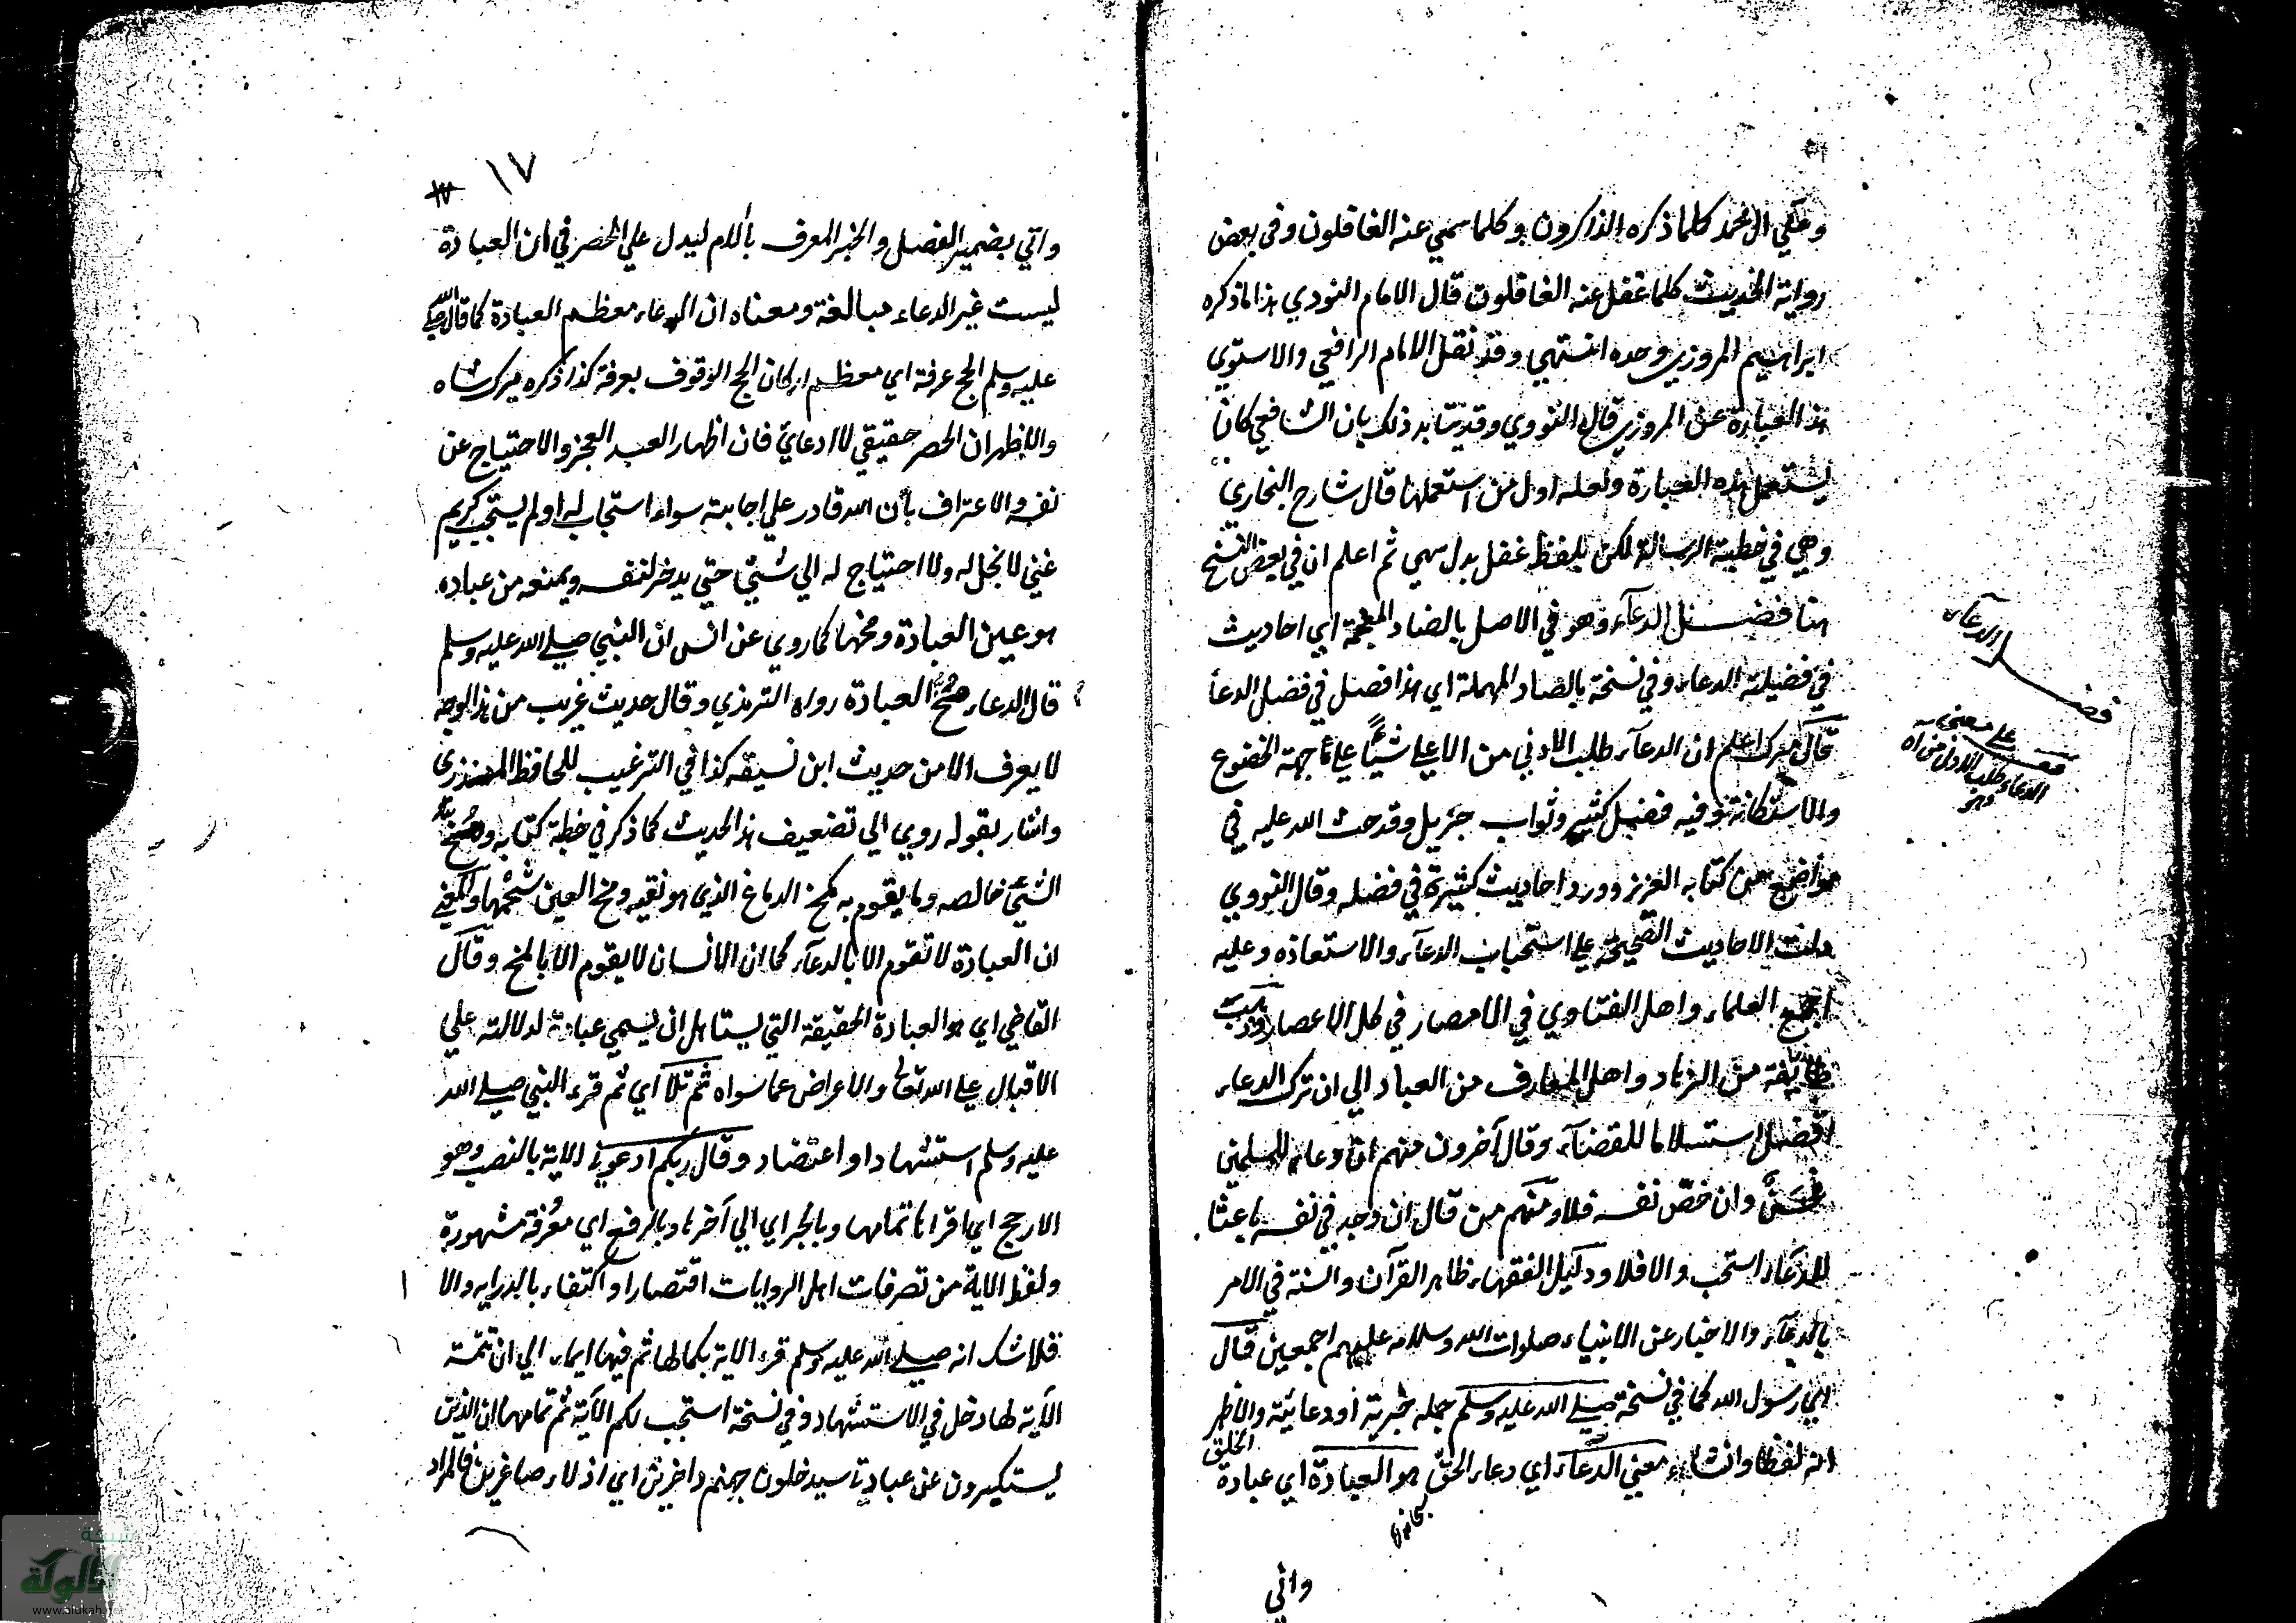 وعلي آل محمد كلما ذكره الذاكرون وكلما سهي عنه الغافلون وفي بعض
رواية الحديث كلما غفل عنه الغافلون قال الامام النووي هذا ما ذكره
ابراهيم المروزي وحده انتهي وقد نقل الامام الرافعي والاستوي
هذا العبارة عن المروزي قال النووي وقد يتأيد ذلك بان الشافعي كان
يستعمل هذه العبارة ولعله اول من استعملها قال شارح البخاري
وهي في خطبة الرسالة لكن بلفظ غفل بدل سهي ثم اعلم ان في بعض النسخ
هنا فضل الدعاء وهو في الاصل بالضاد المعجمة اي احاديث
في فضيلة الدعاء وفي نسخة بالصاد المهملة اي هذا فصل في فضل الدعأ
قال ميرك اعلم ان الدعآء طلب الادني من الاعلي شيأ علي جهة الخضوع
والاستكانة وفيه فضل كثير وثواب جزيل وقد حث الله عليه في
مواضع من كتابه العزيز وورد احاديث كثيرة في فضله وقال النووي
دلت الاحاديث الصحيحة علي استحباب الدعآء والاستعاذه وعليه
اجمع العلماء واهل الفتاوي في الامصار في كل الاعصار وذهب
طايفة من الزهاد واهل المعارف من العباد الي ان ترك الدعاء
افضل استسلاما للقضآء وقال آخرون منهم ان دعا للمسلمين
فحسن وان خص نفسه فلا ومنهم من قال ان وجد في نفسه باعثا
للدعآء استحب والا فلا ودليل الفقهاء ظاهر القرآن والسنة في الامر
بالدعآء والاخبار عن الانبياء صلوات الله وسلامه عليهم اجمعين قال
اي رسول الله كما في نسخة صلي الله عليه وسلم جملة خبرية أو دعائية والاظهر
انه لفظا وانشاء معني الدعآء اي دعاء الخلق الحق هو العبادة اي عبادة
واتي
فضل الدعآء
واتي بضمير الفصل والخبر المعرف بأللام ليدل علي الحصر في ان العبادة
ليست غير الدعاء مبالغة ومعناه ان الدعاء معظم العبادة كما قال صلي الله
عليه وسلم الحج عرفة اي معظم اركان الحج الوقوف بعرفة كذا ذكره ميرك شاه
والاظهر ان الحصر حقيقي لا ادعائي فان اظهار العبد العجز والاحتياج عن
نفسه والاعتراف بأن الله قادر علي اجابته سواء استجاب له او لم يستجب كريم
غني لا بخل له ولا احتياج له الي شيئ حتي يدخر لنفسه ويمنعه من عباده
هو عين العبادة ومخها كما روي عن انس ان النبي صلي الله عليه وسلم
قال الدعاء مخ العبادة رواه الترمذي وقال حديث غريب من هذا الوجه
لا يعرف الا من حديث ابن لهيعة كذا في الترغيب للحافظ المنذري
واشار بقوله روي الي تضعيف هذا الحديث كما ذكر في خطبة كتابه ومخ
الشيئ خالصه وما يقوم به كمخ الدماغ الذي هو نقيه ومخ العين شحمها والمعني
ان العبادة لا تقوم الا بالدعآء كما ان الانسان لا يقوم الا بالمخ وقال
القاضي اي هو العبادة الحقيقة التي يستاهل ان يسمي عبادة لدلالته علي
الاقبال علي الله تعالي والاعراض عما سواه ثم تلآ اي ثم قرء النبي صلي الله
عليه وسلم استشهادا و اعتضادا وقال ربكم ادعوني الاية بالنصب وهو
الارجح اي اقرأ تمامها وبالجر اي الي آخرها وبالرفع اي معرفة مشهورة
ولفظ الاية من تصرفات اهل الروايات اقتصارا و اكتفاء بالدراية والا
فلا شك انه صلي الله عليه وسلم قرء الاية بكمالها ثم فيها ايماء الي ان تتمة
الآية لها دخل في الاستشهاد وفي نسخة استجب لكم الآية ثم تمامها ان الذين
يستكبرون عن عبادتي سيدخلون جهنم داخرين اي اذلاء صاغرين فالمراد
١٧
شبكة
الألوكة
www.alukah.net